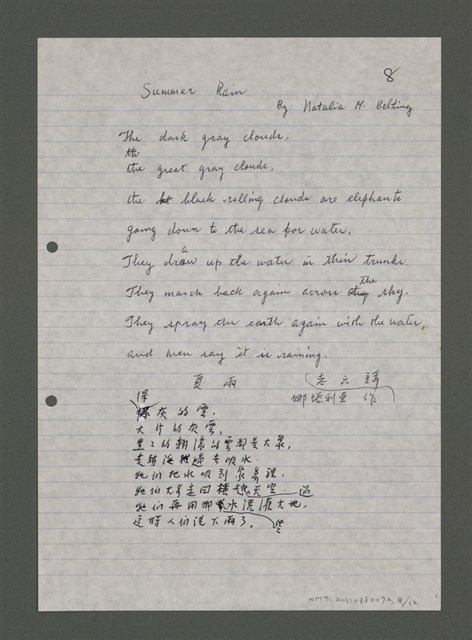 8
Summer Rain
By Natalia M. Belting
The dark gray clouds,
the great gray clouds,
the black rolling clouds are elephants
going down to the sea for water.
They draw up the water in their trunks.
They march back again across the sky.
They spray the earth again with the water,
and men say it is raining.
夏 雨
老六 譯
娜塔利亞 作
深灰的雲,
大片的灰雲,
黑色的翻滾的雲都是大象,
走到海邊去吸水.
牠們把水吸到象鼻裡.
牠們大步走回橫越過天空
牠們再用那些水澆灌大地,
這時人们说下雨了.
NMTL20110380092, 8/12